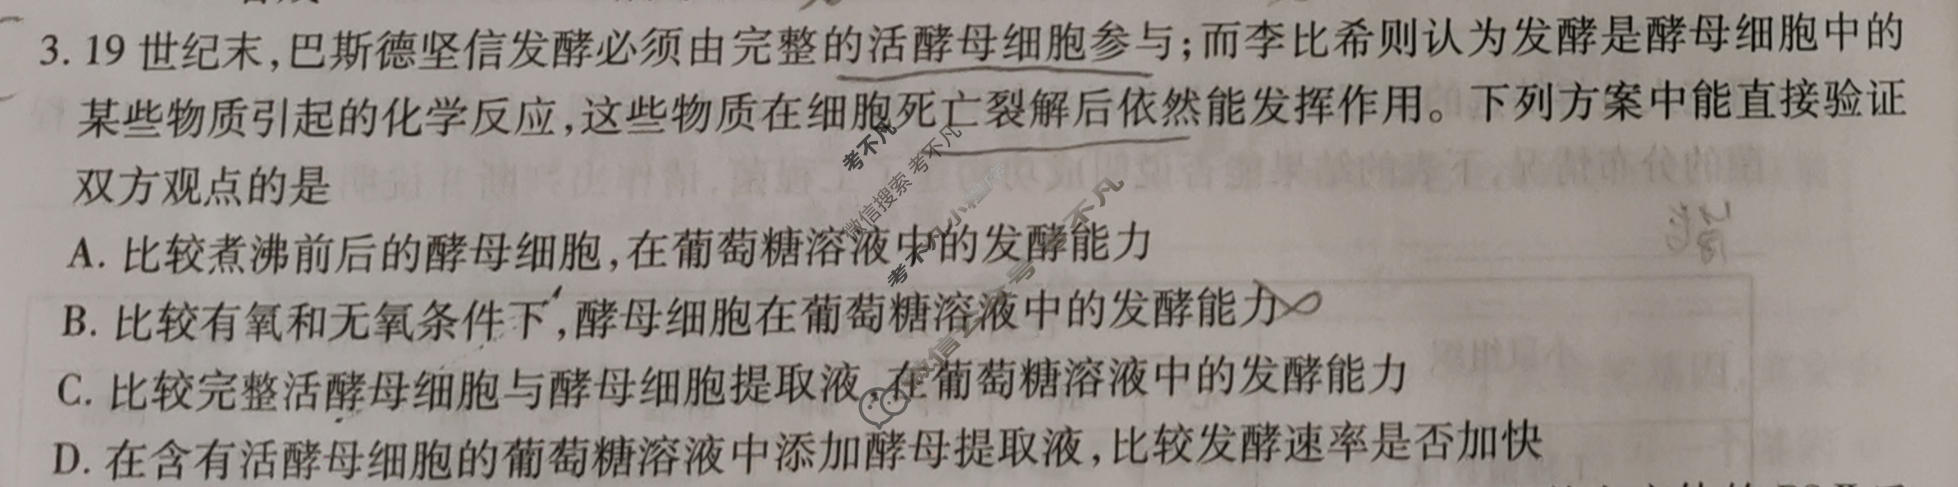 3. 19 世纪末,巴斯德坚信发酵必须由完整的活酵母细胞参与;而李比希则认为发酵是酵母细胞中的
某些物质引起的化学反应,这些物质在细胞死亡裂解后依然能发挥作用。下列方案中能直接验证
双方观点的是
A. 比较煮沸前后的酵母细胞,在葡萄糖溶液中的发酵能力
B. 比较有氧和无氧条件下,酵母细胞在葡萄糖溶液中的发酵能力
C. 比较完整活酵母细胞与酵母细胞提取液,在葡萄糖溶液中的发酵能力
D. 在含有活酵母细胞的葡萄糖溶液中添加酵母提取液,比较发酵速率是否加快
考不凡
微信搜索 考不凡